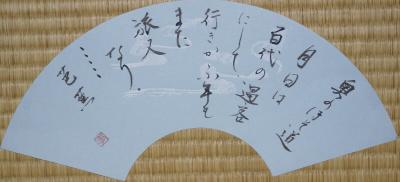 奥のほそ道
月日は
百代の過客
にして
行きかふ年も
また
旅人
なり.